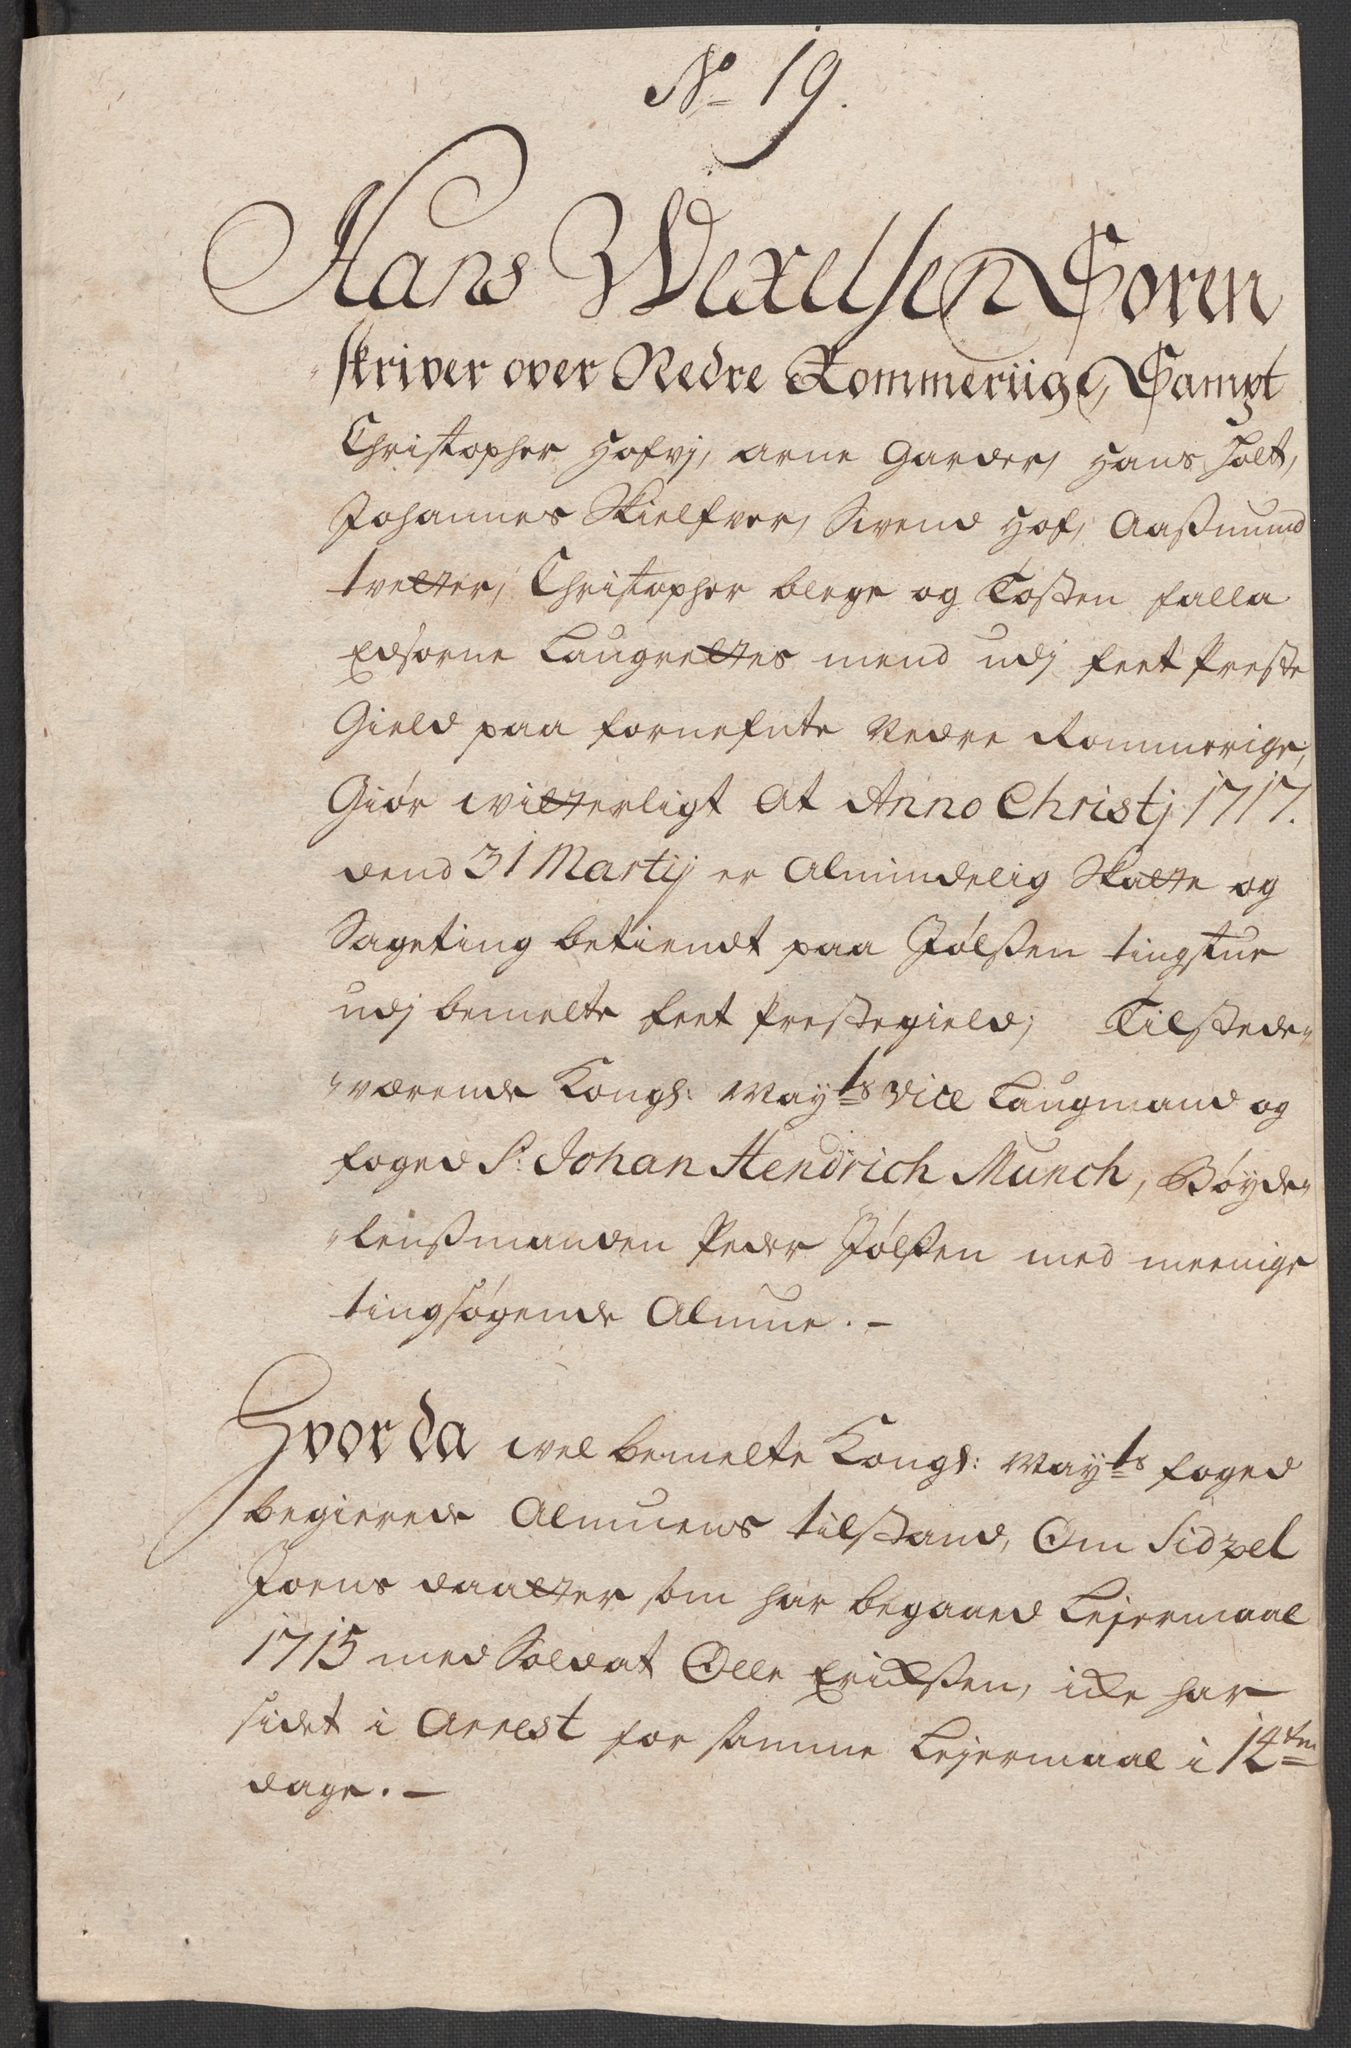 No 19.
Hans Wexelsen Soren
skriver over Nedre Rommeriige, Sampt
Christopher Hofvj, Arne Garder, Hans Holt,
Johannes Skielfver, Svend Hof, Aaßmund
tvetter, Christopher blege og Tosten falla
Edsorne Laugrettes mend udj feet Preste
Gield paa fornefnte Nedre Rommerige,
Giör witterligt At Anno Christj 1717.
dend 31 Martij er Almindelig Skatte og
Sageting betiendt paa Jölsten tingstue
udj bemelte feet Prestegield; Tilstede,,
,,værende Kongl: Mayts vice Laugmand og
foged Sr: Johan Hendrich Munch, Böyde,,
,,lenßmanden Peder Jölsten med meenige
tingsögende Almue. –
Hvor da wel bemelte Kongl: Mayts foged
begierede Almuens tilstand, Om Sidzel
Joens daatter som har begaaed Lejermaal
1715 med Soldat Olle Erickßen, icke har
sidet i Arrest for samme Lejermaal i 14ten
dage. –